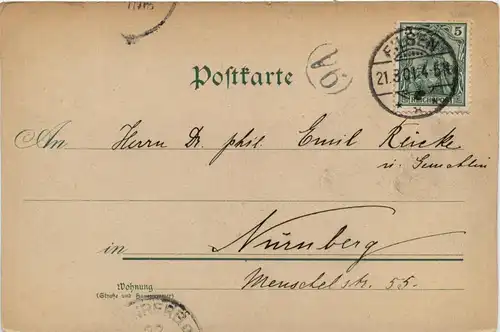 5
21.3.01.4-5N
Postkarte
An Herrn Dr. phil. Emil Reicke
u. Gemahlin
in Nürnberg
Wohnung Menschelstr. 55.
(Straße und Hausnummer)